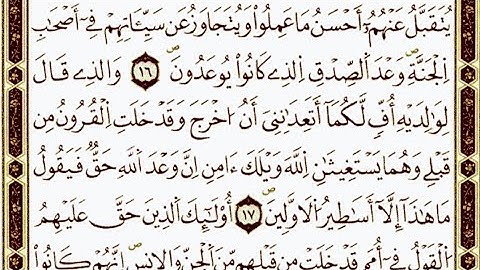 يُتَقَبَّلُ عَنْهُمُۥٓ أَحْسَنُ مَا عَمِلُواْ وَيُتَجَاوَزُ عَن سَيِّـَٔاتِهِمْ فِےٓ أَصْحَٰبِ
اِ۬لْجَنَّةِۖ وَعْدَ اَ۬لصِّدْقِ اِ۬لذِے كَانُواْ يُوعَدُونَۖ ١٦ وَالذِے قَالَ
لِوَٰلِدَيْهِ أُفّٖ لَّكُمَآ أَتَعِدَٰنِنِيَ أَنُ ا۟خْرَجَ وَقَدْ خَلَتِ اِ۬لْقُرُونُ مِن
قَبْلِے وَهُمَا يَسْتَغِيثَٰنِ اِ۬للَّهَ وَيْلَكَ ءَامِنِ اِنَّ وَعْدَ اَ۬للَّهِ حَقّٞ فَيَقُولُ
مَا هَٰذَآ إِلَّآ أَسَٰطِيرُ اُ۬لَاوَّلِينَۖ ١٧ أُوْلَٰٓئِكَ اَ۬لذِينَ حَقَّ عَلَيْهِمُ
اُ۬لْقَوْلُ فِےٓ أُمَمٖ قَدْ خَلَتْ مِن قَبْلِهِم مِّنَ اَ۬لْجِنِّ وَالِانسِۖ إِنَّهُمْ كَانُواْ